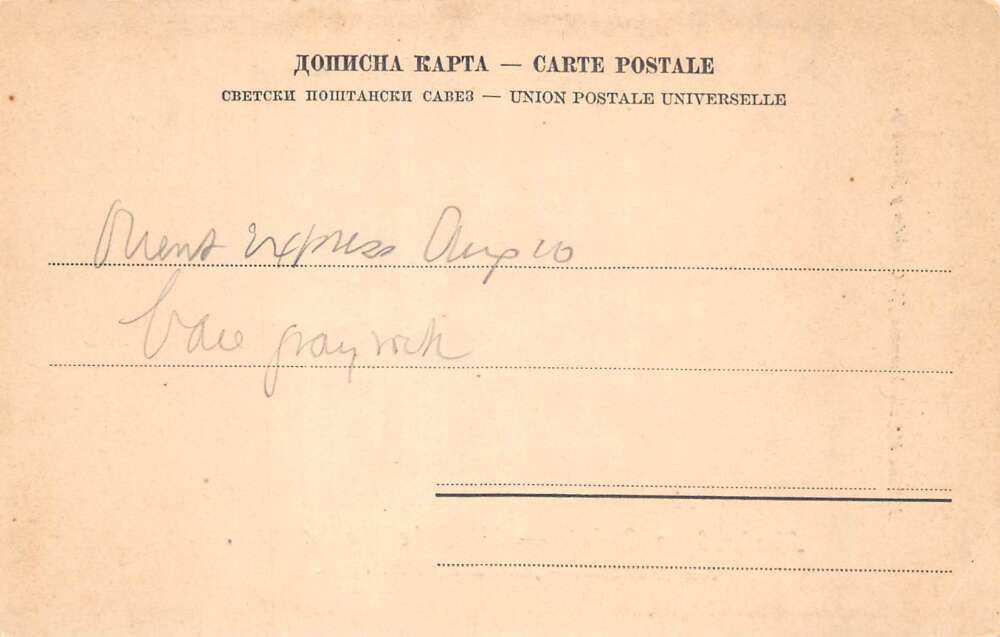 ДОПИСНА КАРТА — CARTE POSTALE
СВЕТСКИ ПОШТАНСКИ САВЕЗ — UNION POSTALE UNIVERSELLE
Orient Express Aug 10
gray rock